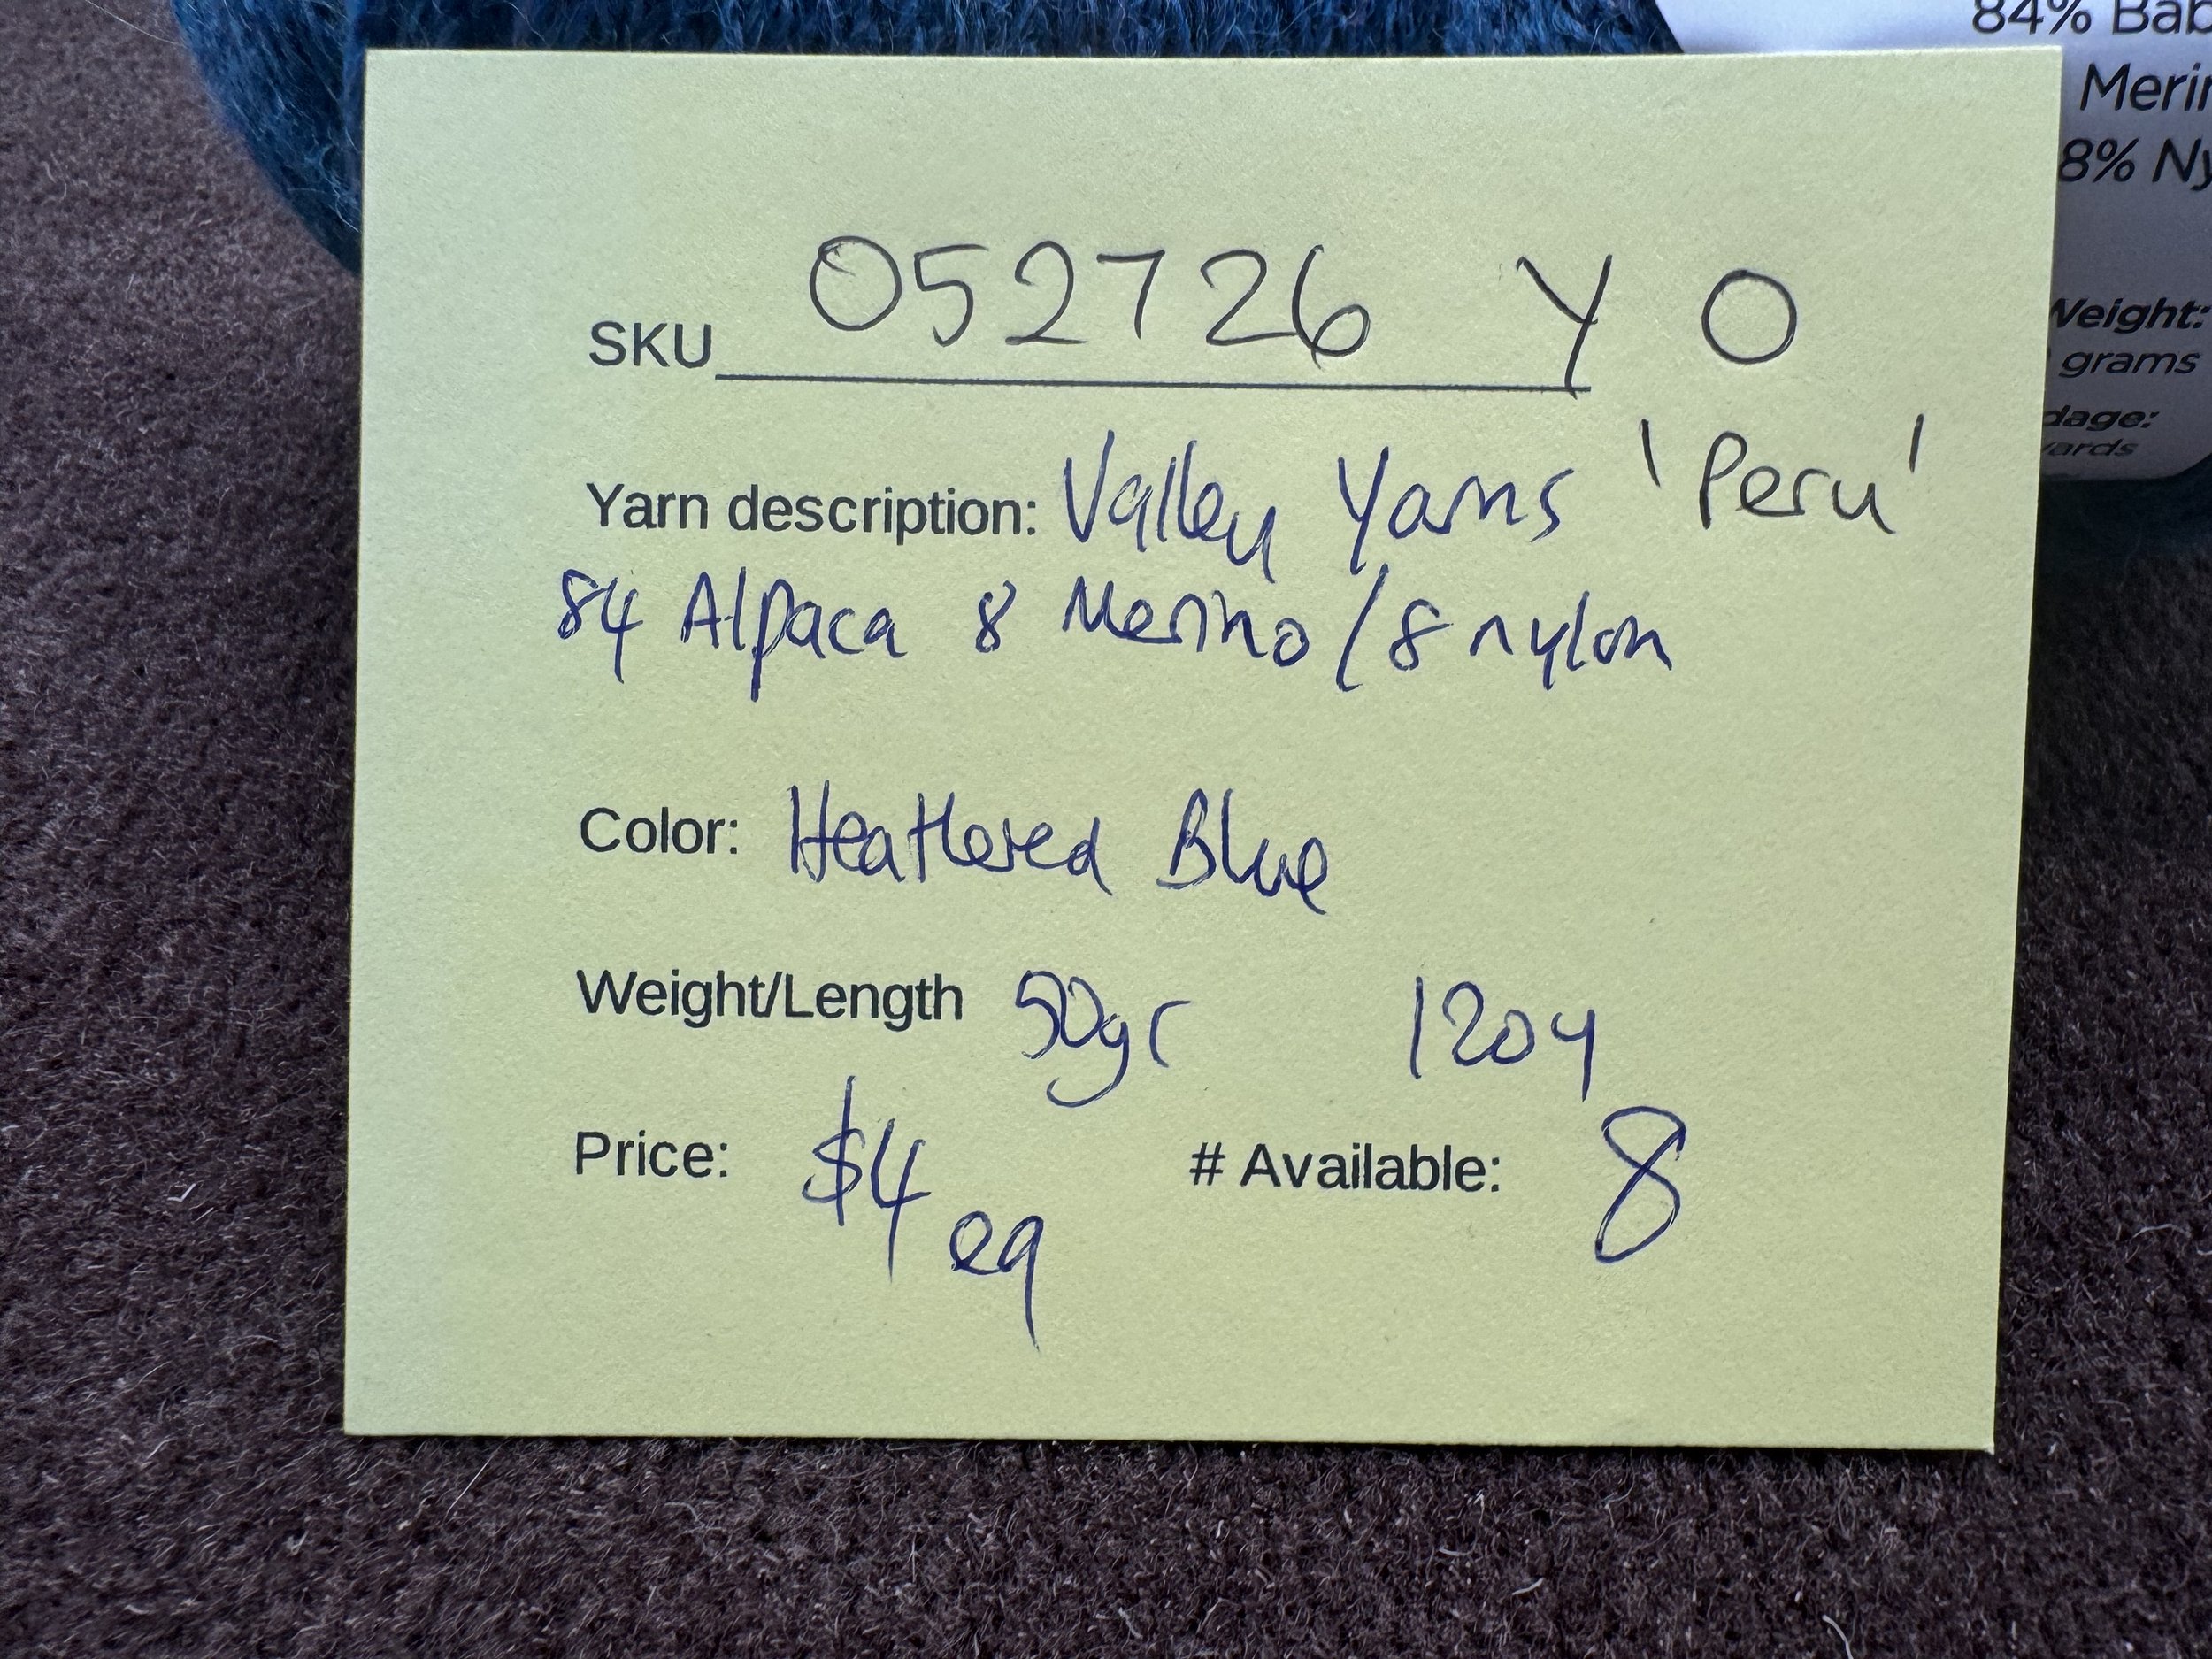 84% Bab
Merin
8% Ny
Weight:
grams
dage:
yards
SKU 052726 Y O
Yarn description: Valley Yarns 'Peru'
84 Alpaca 8 Merino/8 nylon
Color: Heathered Blue
Weight/Length 50gr 120y
Price: $4 ea # Available: 8